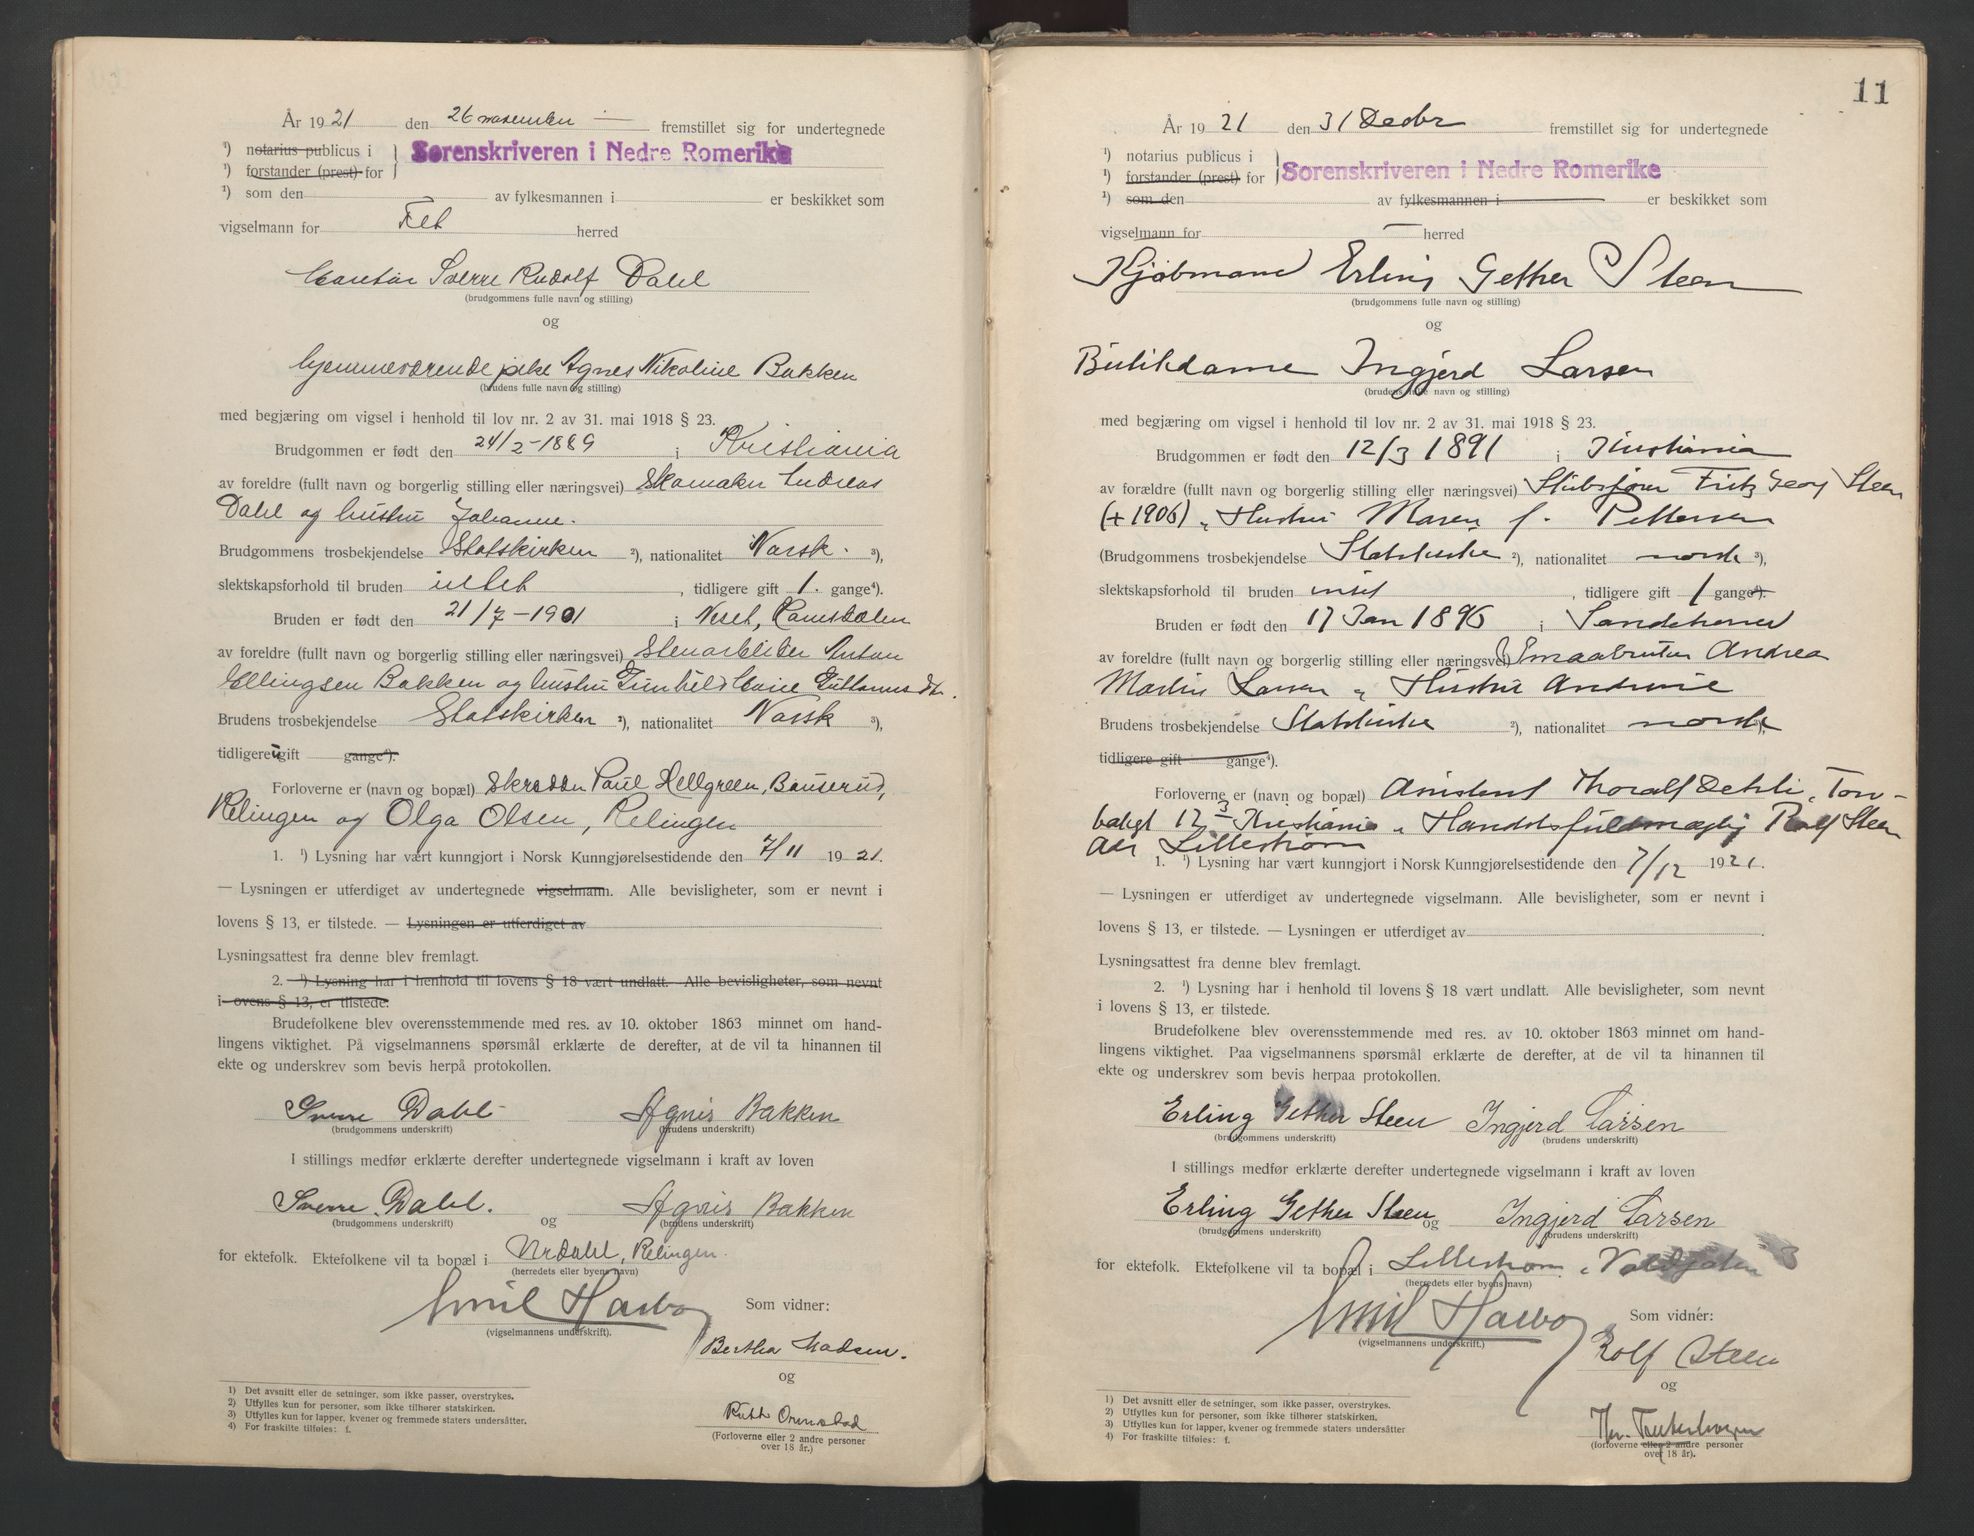 År 1921 den 26 november — fremstillet sig for undertegnede
¹) notarius publicus i
Sorenskriveren i Nedre Romerike
¹) forstander (prest) for
¹) som den av fylkesmannen i er beskikket som
vigselmann for Fet herred
Sverre Rudolf Dahl
(brudgommens fulle navn og stilling)
og
hjemmeværende pike Agnes Nikoline Bakken
(brudens fulle navn og stilling)
med begjæring om vigsel i henhold til lov nr. 2 av 31. mai 1918 § 23.
Brudgommen er født den 24/2-1889 i Kristiania
av foreldre (fullt navn og borgerlig stilling eller næringsvei) Skomaker Andreas
Dahl og hustru Johanne.
Brudgommens trosbekjendelse Statskirken ²), nationalitet Norsk. ³),
slektskapsforhold til bruden intet , tidligere gift 1. gange⁴).
Bruden er født den 21/7-1901 i Neset, Romsdalen
av foreldre (fullt navn og borgerlig stilling eller næringsvei) Stenarbeider Anton
Ellingsen Bakken og hustru Gunhild Marie Guttormsdtr.
Brudens trosbekjendelse Statskirken ²), nationalitet Norsk ³),
tidligere ugift gange⁴).
Forloverne er (navn og bopæl) Skrædder Paul Hellgreen, Bauserud,
Relingen og Olga Olsen, Relingen
1. ¹) Lysning har vært kunngjort i Norsk Kunngjørelsestidende den 7/11 1921.
— Lysningen er utferdiget av undertegnede vigselmann. Alle bevisligheter, som er nevnt i
lovens § 13, er tilstede. — Lysningen er utferdiget av
Lysningsattest fra denne blev fremlagt.
2. ¹) Lysning har i henhold til lovens § 18 vært undlatt. Alle bevisligheter, som nevnt
i lovens § 13, er tilstede.
Brudefolkene blev overensstemmende med res. av 10. oktober 1863 minnet om hand-
lingens viktighet. På vigselmannens spørsmål erklærte de derefter, at de vil ta hinannen til
ekte og underskrev som bevis herpå protokollen.
Sverre Dahl Agnes Bakken
(brudgommens underskrift) (brudens underskrift)
I stillings medfør erklærte derefter undertegnede vigselmann i kraft av loven
Sverre Dahl. og Agnes Bakken
(brudgommens underskrift) (brudens underskrift)
for ektefolk. Ektefolkene vil ta bopæl i Urdahl, Relingen.
(herredets eller byens navn)
Emil Hasbo Som vidner:
(vigselmannens underskrift).
Bertha Madsen.
og
Ruth Ormstad
(Forloverne eller 2 andre personer
over 18 år.)
1) Det avsnitt eller de setninger, som ikke passer, overstrykes.
2) Utfylles kun for personer, som ikke tilhører statskirken.
3) Utfylles kun for lapper, kvener og fremmede staters undersåtter.
4) For fraskilte tilføies: f.
11
År 1921 den 31 Decbr fremstillet sig for undertegnede
¹) notarius publicus i
Sorenskriveren i Nedre Romerike
¹) forstander (prest) for
¹) som den av fylkesmannen i er beskikket som
vigselmann for herred
Kjøbmand Erling Gether Steen
(brudgommens fulle navn og stilling)
og
Butikdame Ingjerd Larsen
(brudens fulle navn og stilling)
med begjæring om vigsel i henhold til lov nr. 2 av 31. mai 1918 § 23.
Brudgommen er født den 12/3 1891 i Kristiania
av forældre (fullt navn og borgerlig stilling eller næringsvei) Fritz Georg Steen
(+ 1906) Hustru Maren f. Pettersen
(Brudgommens trosbekjendelse Statskirke ²), nationalitet norsk ³),
slektskapsforhold til bruden intet , tidligere gift 1 gange⁴).
Bruden er født den 17 Jan 1896 i Sandeherred
av foreldre (fullt navn og borgerlig stilling eller næringsvei) Smaabruker Andreas
Martin Larsen Hustru
Brudens trosbekjendelse Statskirke ²), nationalitet norsk ³),
tidligere gift gange⁴).
Forloverne er (navn og bopæl) Assistent Thoralf Dehli, Ton-
Kristiania Handelsfuldmægtig Rolf Steen
Lillestrøm
1. ¹) Lysning har vært kunngjort i Norsk Kunngjørelsestidende den 7/12 1921.
— Lysningen er utferdiget av undertegnede vigselmann. Alle bevisligheter, som er nevnt i
lovens § 13, er tilstede. — Lysningen er utferdiget av .
Lysningsattest fra denne blev fremlagt.
2. ¹) Lysning har i henhold til lovens § 18 vært undlatt. Alle bevisligheter, som nevnt
i lovens § 13, er tilstede.
Brudefolkene blev overensstemmende med res. av 10. oktober 1863 minnet om hand-
lingens viktighet. Paa vigselmannens spørsmål erklærte de derefter, at de vil ta hinannen til
ekte og underskrev som bevis herpaa protokollen.
Erling Gether Steen Ingjerd Larsen
(brudgommens underskrift) (brudens underskrift)
I stillings medfør erklærte derefter undertegnede vigselmann i kraft av loven
Erling Gether Steen og Ingjerd Larsen
(brudgommens underskrift) (brudens underskrift)
for ektefolk. Ektefolkene vil ta bopæl i Lillestrøm
(herredets eller byens navn)
Emil Hasbo Som vidnér:
(vigselmannens underskrift.)
Rolf Steen
og
(forloverne eller 2 andre personer
over 18 år).
1) Det avsnitt eller de setninger, som ikke passer, overstrykes.
2) Utfylles kun for personer, som ikke tilhører statskirken.
3) Utfylles kun for lapper, kvener og fremmede staters undersåtter
4) For fraskilte tilføies: f.